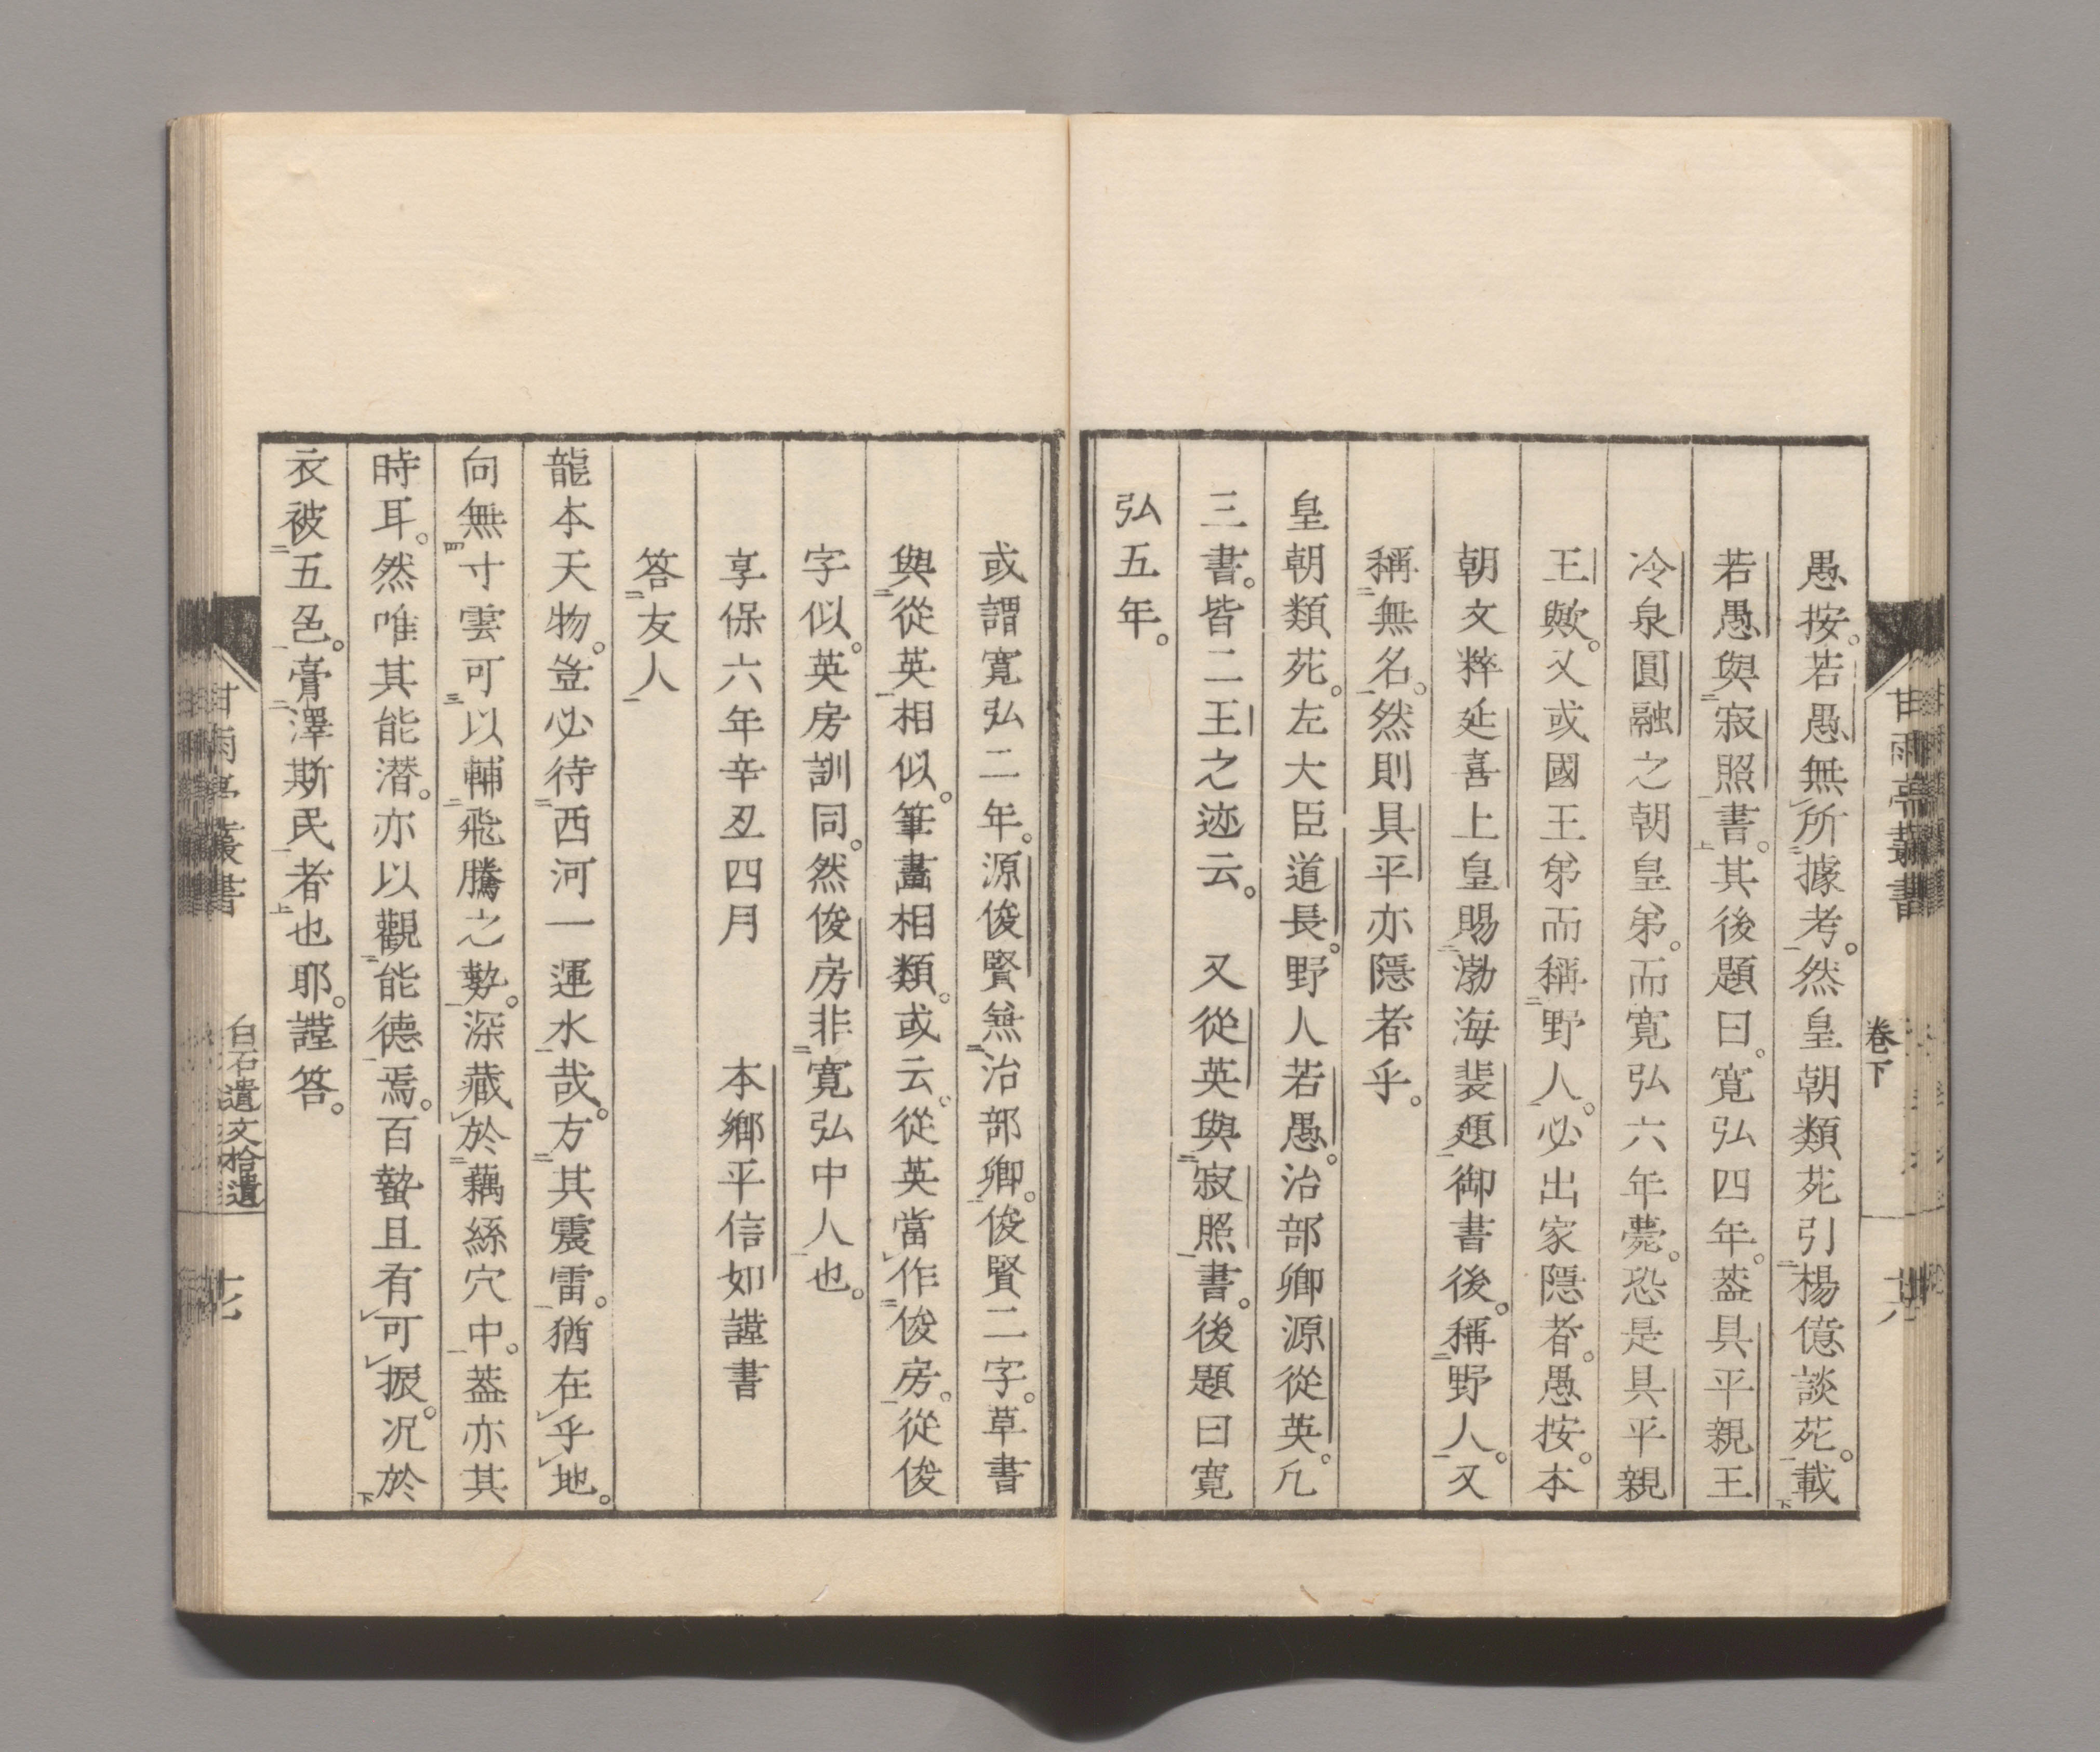 愚按。若愚無所據考。然皇朝類苑引楊億談苑。載
若愚與寂照書。其後題曰。寬弘四年。蓋具平親王
冷泉圓融之朝皇弟。而寬弘六年薨。恐是具平親
王歟。又或國王弟而稱野人。必出家隱者。愚按。本
朝文粹延喜上皇賜渤海裴遡御書後。稱野人。又
稱無名。然則具平亦隱者乎。
皇朝類苑。左大臣道長。野人若愚。治部卿源從英。凡
三書。皆二王之迹云。又從英與寂照書。後題曰寬
弘五年。
或謂寬弘二年。源俊賢無治部卿。俊賢二字。草書
與從英相似。筆畫相類。或云。從英當作俊房。從俊
字似。英房訓同。然俊房非寬弘中人也。
享保六年辛丑四月 本鄉平信如謹書
答友人
龍本天物。豈必待西河一運水哉。方其震雷。猶在乎地。
向無寸雲可以輔飛騰之勢。深藏於藕絲穴中。蓋亦其
時耳。然唯其能潛。亦以觀能德焉。百蟄且有可振。况於
衣被五色。膏澤斯民者也耶。謹答。
甘雨亭叢書
卷下
廿六
甘雨亭叢書
白石遺文拾遺